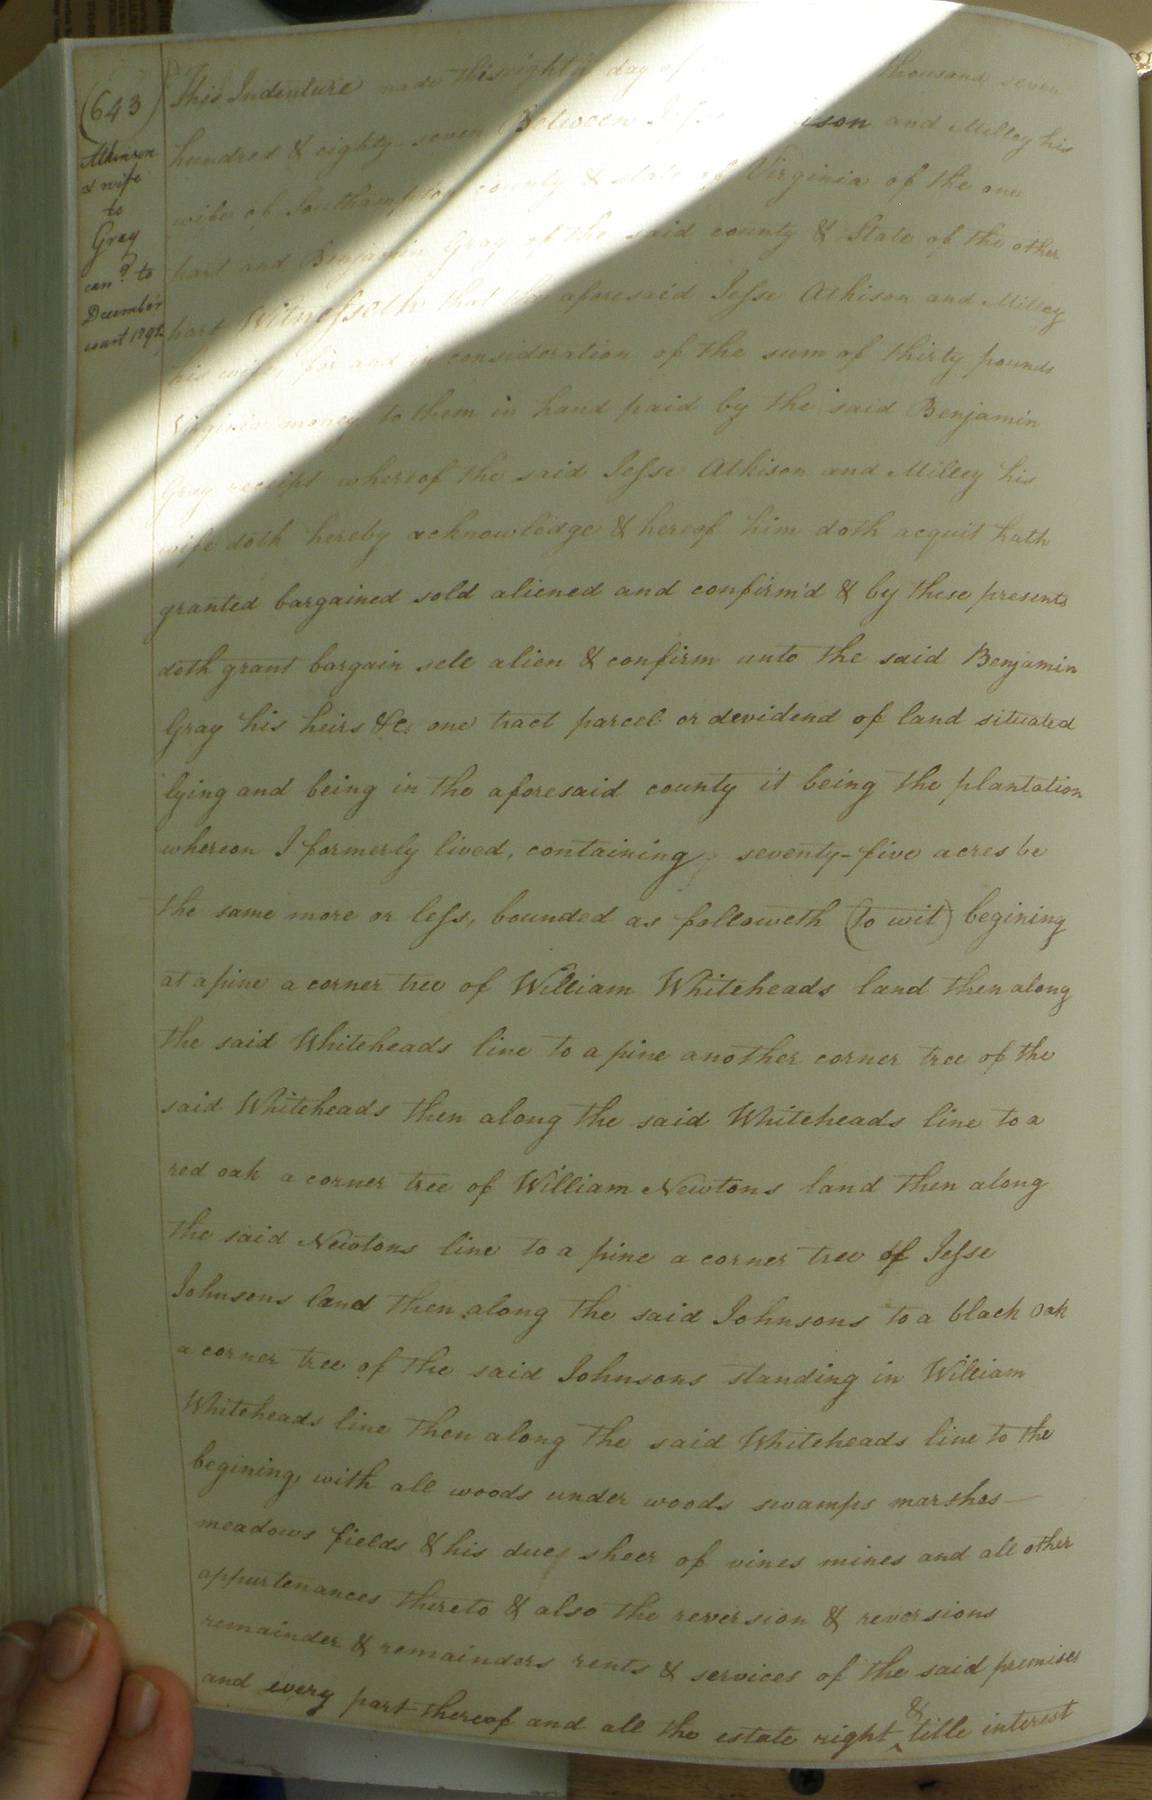 (643)
Atkinson
& wife
to
Gray
can? to
December
court 1792
This Indenture made this eighth day of thousand seven
hundred & eighty seven Between Jesse ison and Milley his
wife of Southampton county & state of Virginia of the one
part and Benjamin Gray of the said county & State of the other
part Witnesseth that the aforesaid Jesse Atkison and Milley
his wife for and in consideration of the sum of thirty pounds
Virginia money to them in hand paid by the said Benjamin
Gray receipt whereof the said Jesse Atkison and Milley his
wife doth hereby acknowledge & hereof him doth acquit hath
granted bargained sold aliened and confirm'd & by these presents
doth grant bargain sele alien & confirm unto the said Benjamin
Gray his heirs &c. one tract parcel or devidend of land situated
lying and being in the aforesaid county it being the plantation
whereon I formerly lived, containing seventy-five acres be
the same more or less, bounded as followeth (to wit) begining
at a pine a corner tree of William Whiteheads land then along
the said Whiteheads line to a pine another corner tree of the
said Whiteheads then along the said Whiteheads line to a
red oak a corner tree of William Newtons land then along
the said Newtons line to a pine a corner tree of Jesse
Johnsons land then along the said Johnsons to a black oak
a corner tree of the said Johnsons standing in William
Whiteheads line then along the said Whiteheads line to the
begining, with all woods under woods swamps marshes—
meadows fields & his due sheer of vines mines and all other
appurtenances thereto & also the reversion & reversions
remainder & remainders rents & services of the said premises
and every part thereof and all the estate right & title interest